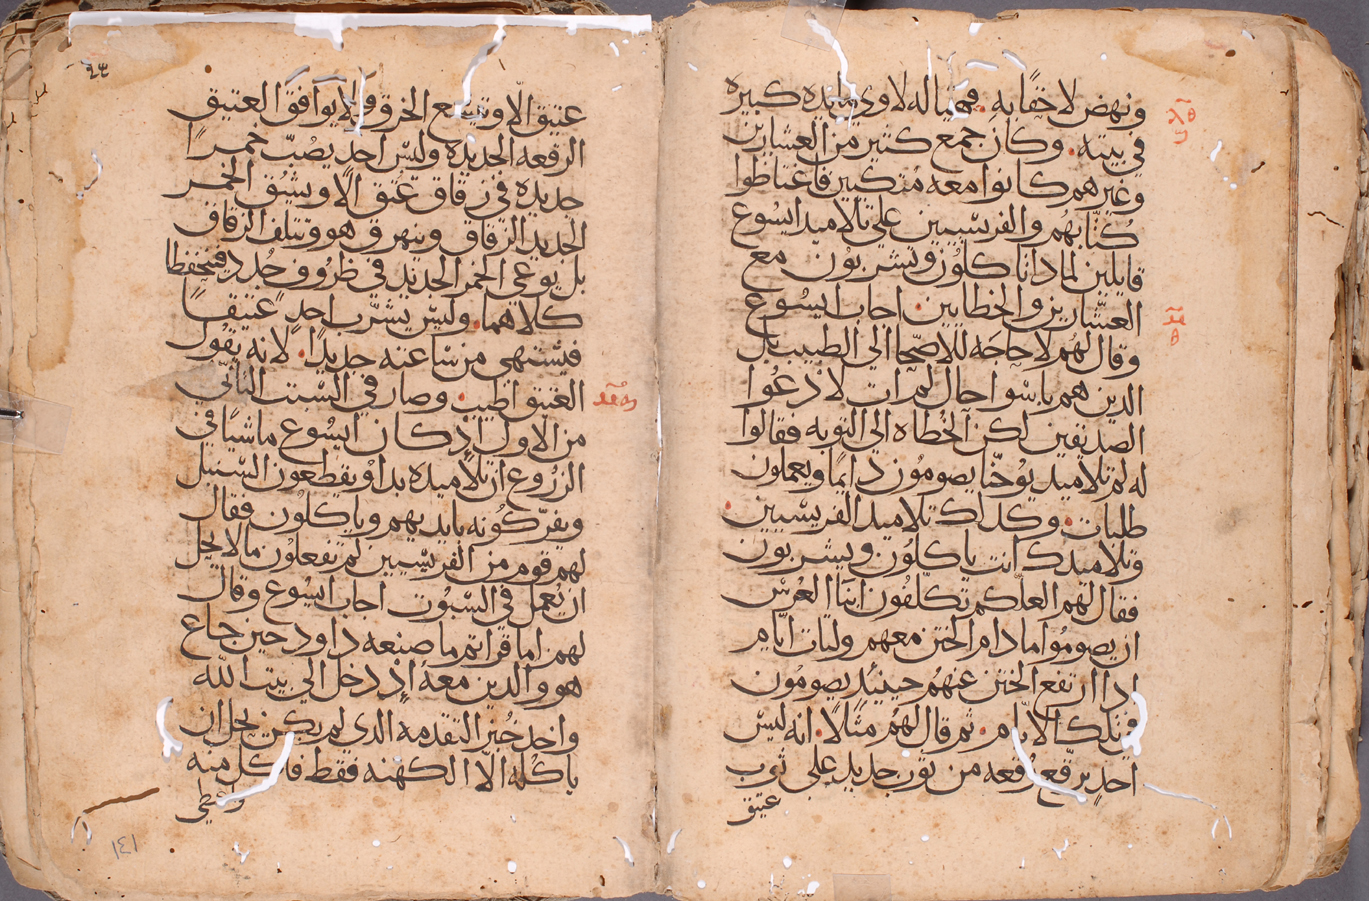 ونهض لاحقًا به. فهيا له لاوي مايده كبيره
في بيته. وكان جمع كثير من العشارين
وغيرهم كانوا معه متكيين فاغتاظوا
كتابهم والفريسيين علي تلاميد ايسوع
قايلين لمادا تاكلون وتشربون مع
العشارين والخطايين. اجاب ايسوع
وقال لهم لا حاجه للاصحا الي الطبيب بل
الدين هم باسوا حال لم ات لادعوا
الصديقين لكن الخطاه الي التوبه فقالوا
له لم تلاميد يوحنا يصومون دايما ويعملون
طلبات. وكدلك تلاميد الفريسيين.
وتلاميدك انت ياكلون ويشربون
فقال لهم العلكم تكلفون ابنا العرس
ان يصوموا ما دام الختن معهم وليات ايام
ادا ارتفع الختن عنهم حينيد يصومون
في تلك الايام. ثم قال لهم مثالا. انه ليس
احد يرقع رقعه من ثوب جديد علي ثوب
عتيق
٩٣
عتيق الا وتشيع الخرق ولا يوافق العتيق
الرقعه الجديده وليس احد يصب خمرا
جديده في زقاق عتق الا ويشق الخمر
الجديد الزقاق وينهرق هو وتتلف الزقاق
بل يوعي الخمر الجديد في ظروف جدد فتحفظا
كلاهما. وليس يشرب احد عتيقا
فيشتهي من ساعته جديدا. لانه يقول
العتيق اطيب. وصار في السبت التاني
من الاول اد كان ايسوع ماشيا في
الزروع ان تلاميده بداو يقطعون السنبل
ويفركونه بايديهم وياكلون فقال
لهم قوم من الفريسيين لم تفعلون ما لا يحل
ان يعمل في السبوت اجاب ايسوع وقال
لهم اما قراتم ما صنعه داود حين جاع
هو والدين معه اد دخل الي بيت الله
واخد خبز التقدمه الدي لم يكن يحل ان
ياكله الا الكهنه فقط فاكل منه
واعطي
١٤١